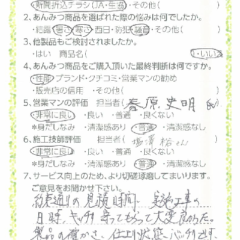 ・新聞折込チラシ・DM・生協・その他(
2.あんみつ商品を選ばれた際の悩みは何でしたか。
・結露・寒さ・暑さ・西日・防犯・騒音・その他(
3.他製品もご検討されましたか。
・はい 商品名( )・いいえ
4.あんみつ商品をご購入頂いた最終判断は何ですか。
・性能・ブランド・クチコミ・営業マンの勧め
・販売内の信用・その他(
5.営業マンの評価 担当者( 春原史明
・非常に良い ・良い ・普通 ・良くない
*身だしなみ ・清潔感あり ・普通 ・清潔感なし
6.施工技師評価 担当者(
・非常に良い ・良い ・普通 ・良くない
*身だしなみ ・清潔感あり ・普通 ・清潔感なし
7.サービス向上のため、より以後琢磨してまいります。
ご意見をお聞かせ下さい。
約束通りの見積時間、実施工事の
日時、キッチリ守ってもらって大変良かった。
製品の確かさ、仕上り状態バッチリです。